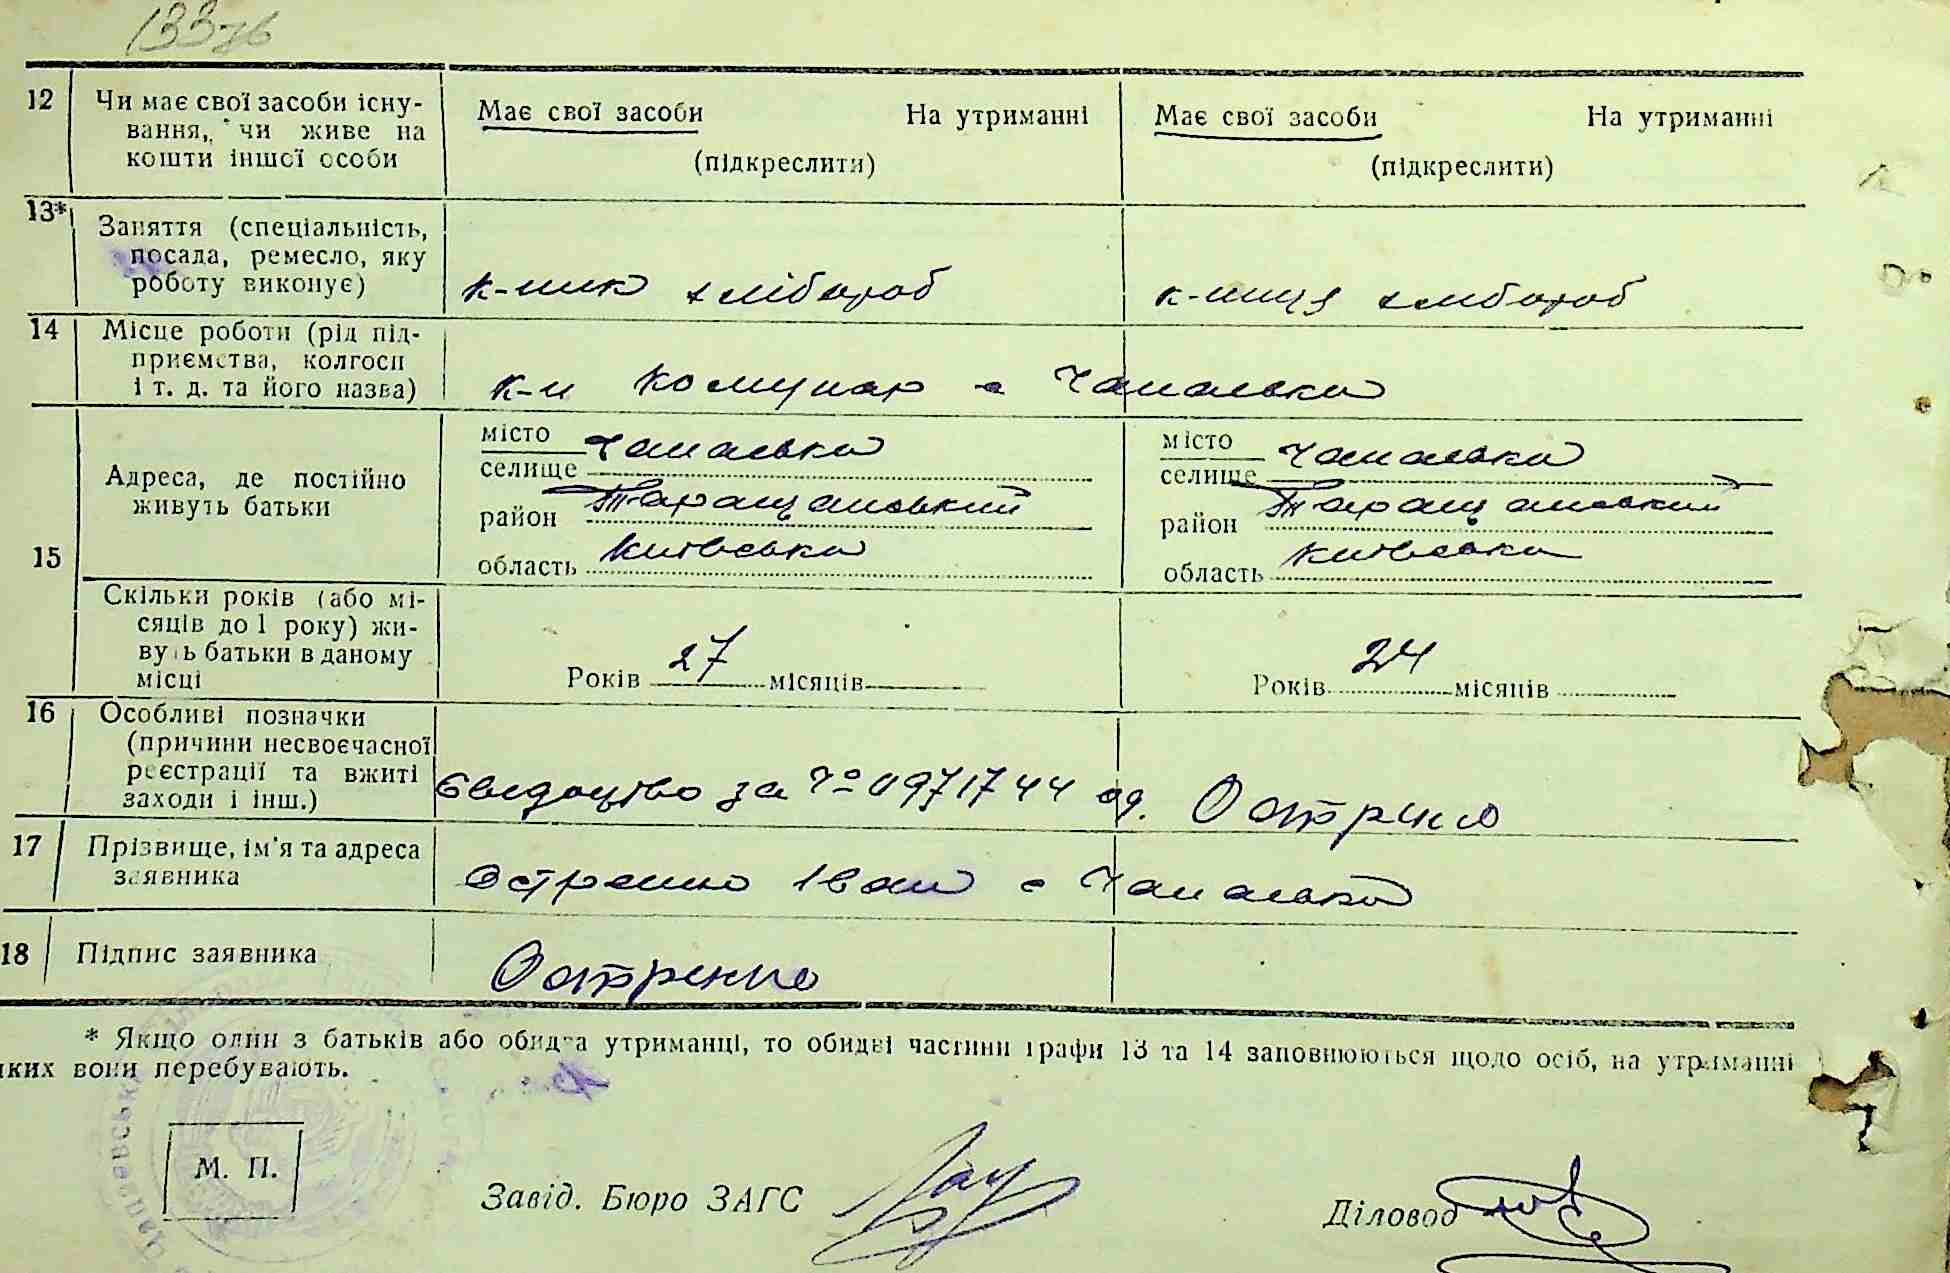 133зв
12 Чи має свої засоби існу-
вання, чи живе на
кошти іншої особи
Має свої засоби На утриманні
(підкреслити)
Має свої засоби На утриманні
(підкреслити)
13* Заняття (спеціальність,
посада, ремесло, яку
роботу виконує)
к-ник хлібороб
к-ниця хлібороб
14 Місце роботи (рід під-
приємства, колгосп
і т. д. та його назва)
к-п Комунар с Чапаєвка
15 Адреса, де постійно
живуть батьки
місто
селище Чапаєвка
район Таращанський
область Київська
місто
селище Чапаєвка
район Таращанський
область Київська
Скільки років (або мі-
сяців до 1 року) жи-
вуть батьки в даному
місці
Років 27 місяців
Років 24 місяців
16 Особливі позначки
(причини несвоєчасної
реєстрації та вжиті
заходи і інш.)
Свидоцтво за № 0971744 од.
17 Прізвище, ім'я та адреса
заявника
Іван с Чапаєвка
18 Підпис заявника
* Якщо один з батьків або обидва утриманці, то обидві частини графи 13 та 14 заповнюються щодо осіб, на утриманні
яких вони перебувають.
М. П.
Завід. Бюро ЗАГС
Діловод